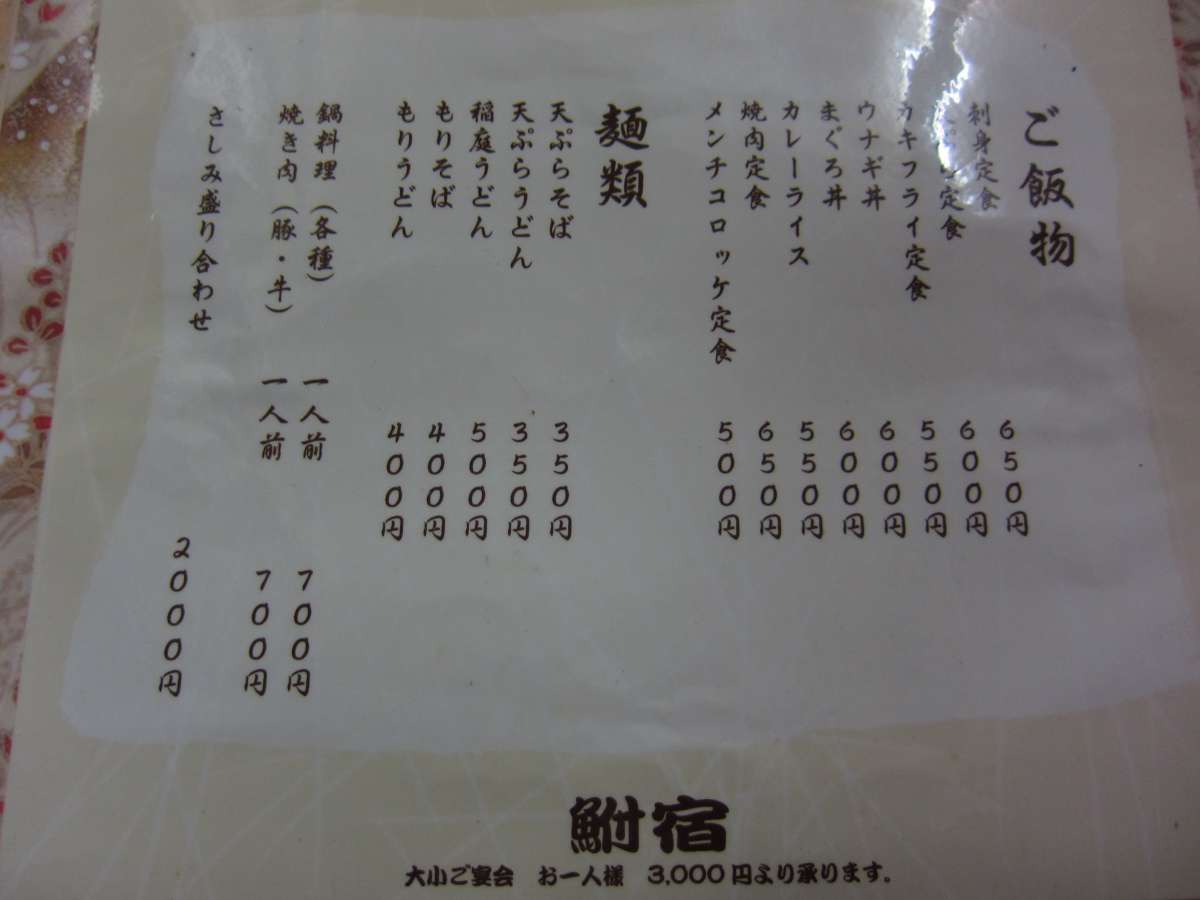 ご飯物
刺身定食 650円
定食 600円
カキフライ定食 550円
ウナギ丼 600円
まぐろ丼 600円
カレーライス 550円
焼肉定食 650円
メンチコロッケ定食 500円
麺類
天ぷらそば 350円
天ぷらうどん 350円
稲庭うどん 500円
もりそば 400円
もりうどん 400円
鍋料理（各種） 一人前 700円
焼き肉（豚・牛） 一人前 700円
さしみ盛り合わせ 2000円
鮒宿
大小ご宴会 お一人様 3,000円より承ります。